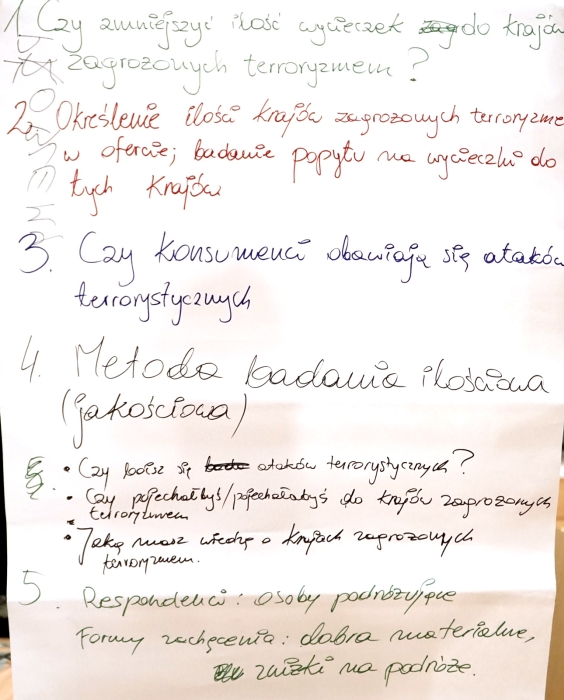 1. Czy zmniejszyć ilość wycieczek do krajów
zagrożonych terroryzmem?
2. Określenie ilości krajów zagrożonych terroryzme
w ofercie; badanie popytu na wycieczki do
tych krajów
3. Czy konsumenci obawiają się ataków
terrorystycznych
4. Metoda badania ilościowa
(jakościowa)
• Czy boisz się ataków terrorystycznych?
• Czy pojechałbyś/pojechałabyś do krajów zagrożonych
terroryzmem
• Jaką masz wiedzę o krajach zagrożonych
terroryzmem.
5. Respondenci: osoby podróżujące
Formy zachęcenia: dobra materialne,
zniżki na podróże.